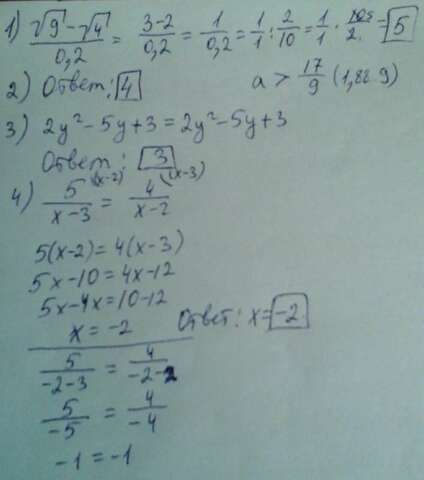 1) (√9 - √4)/0,2 = (3-2)/0,2 = 1/0,2 = 1/1 : 2/10 = 1/1 · 10/2 = 5
2) Ответ: 4 a > 17/9 (1,88..9)
3) 2y² - 5y + 3 = 2y² - 5y + 3
Ответ: 3
4) 5/(x-3) (x-2) = 4/(x-2) (x-3)
5(x-2) = 4(x-3)
5x-10 = 4x-12
5x-4x = 10-12
x = -2 Ответ: x = -2
5/(-2-3) = 4/(-2-2)
5/-5 = 4/-4
-1 = -1